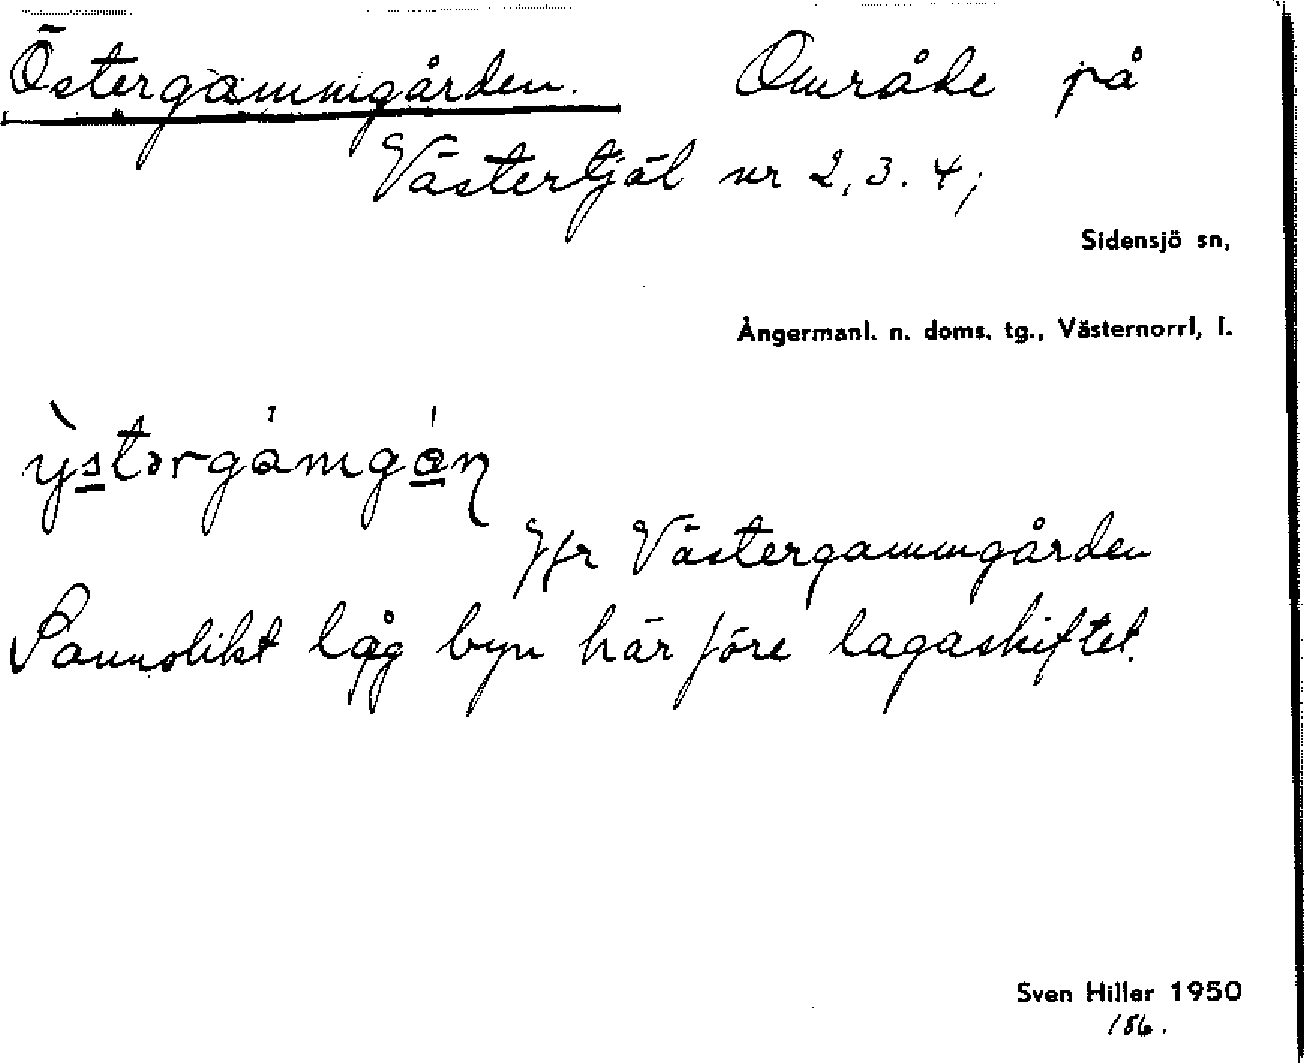 Östergammgården. Område på
Västertjäl nr 2, 3. 4;
Sidensjö sn,
Ångermanl. n. doms. tg., Västernorrl, l.
Jfr Västergammgården
Sannolikt låg byn här före lagaskiftet.
Sven Hiller 1950
186.